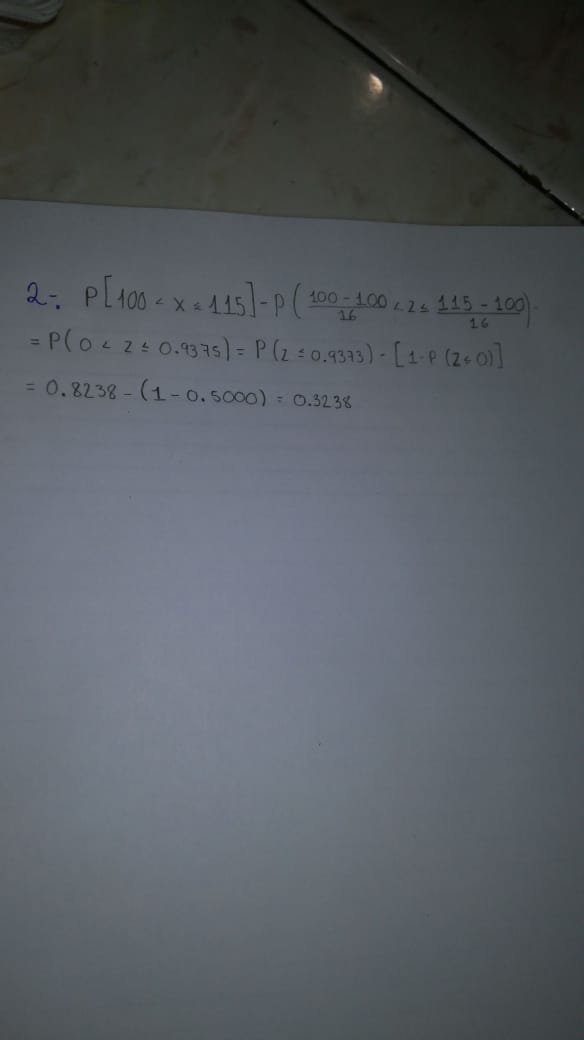 2-. P[100 < x ≤ 115] - P(100 - 100/16 < z ≤ 115 - 100/16)
= P(0 < z ≤ 0.9375) = P(z ≤ 0.9373) - [1-P(z≤0)]
= 0.8238 - (1 - 0.5000) = 0.3238